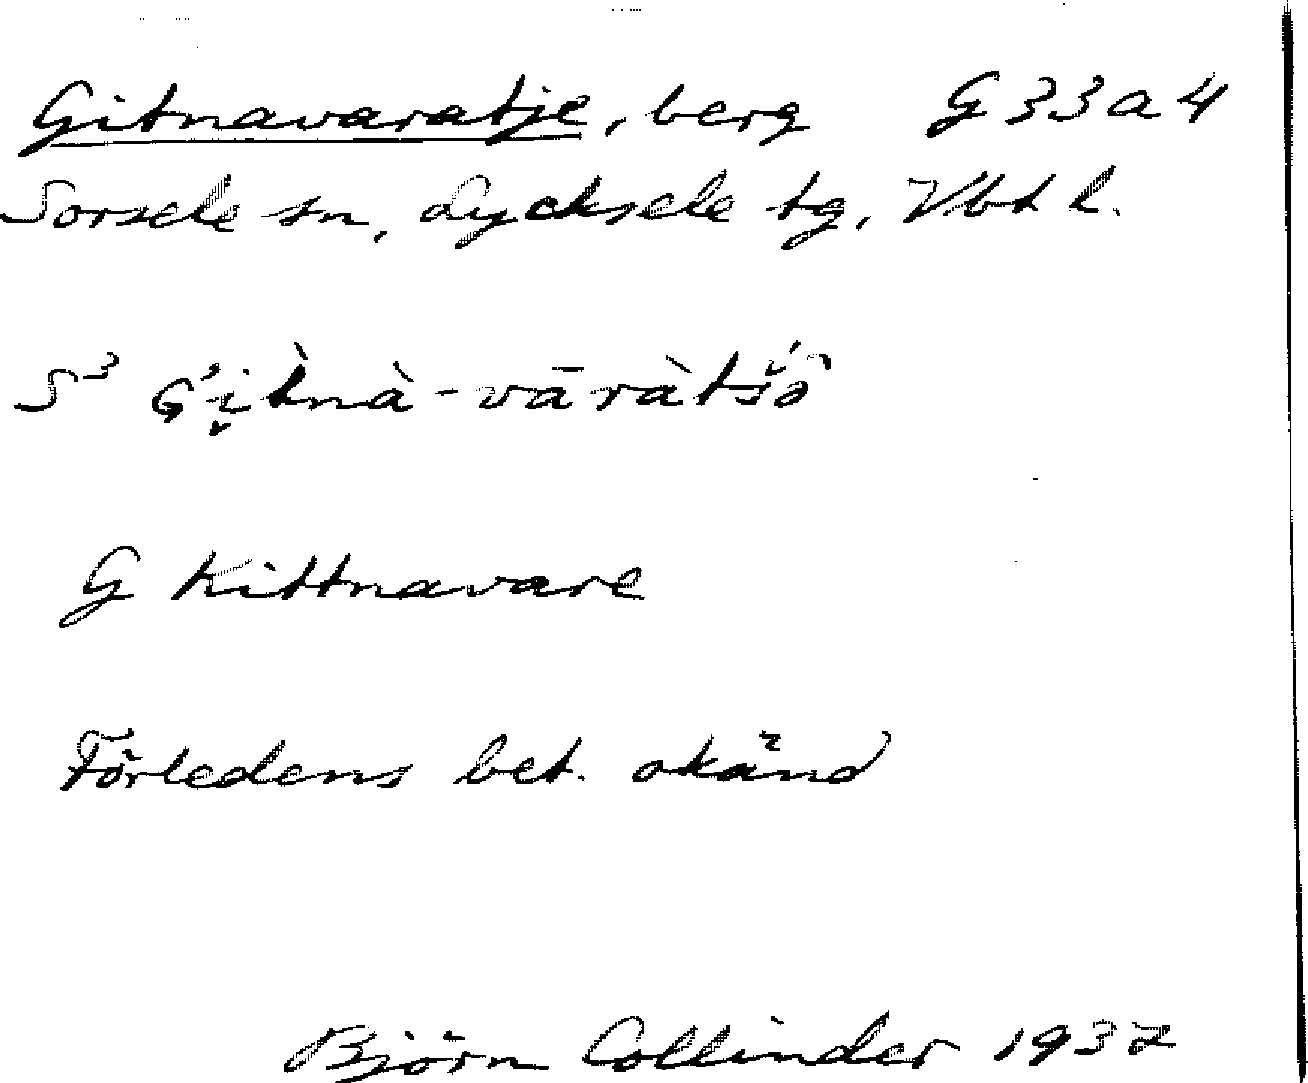 Gitnavaratje, berg G33a4
Sorsele sn, Lycksele tg, Vbt l.
S³ G'i̭t̀nà-vāràtš́ô
G Kittnavare
Förledens bet. okänd
Björn Collinder 1937